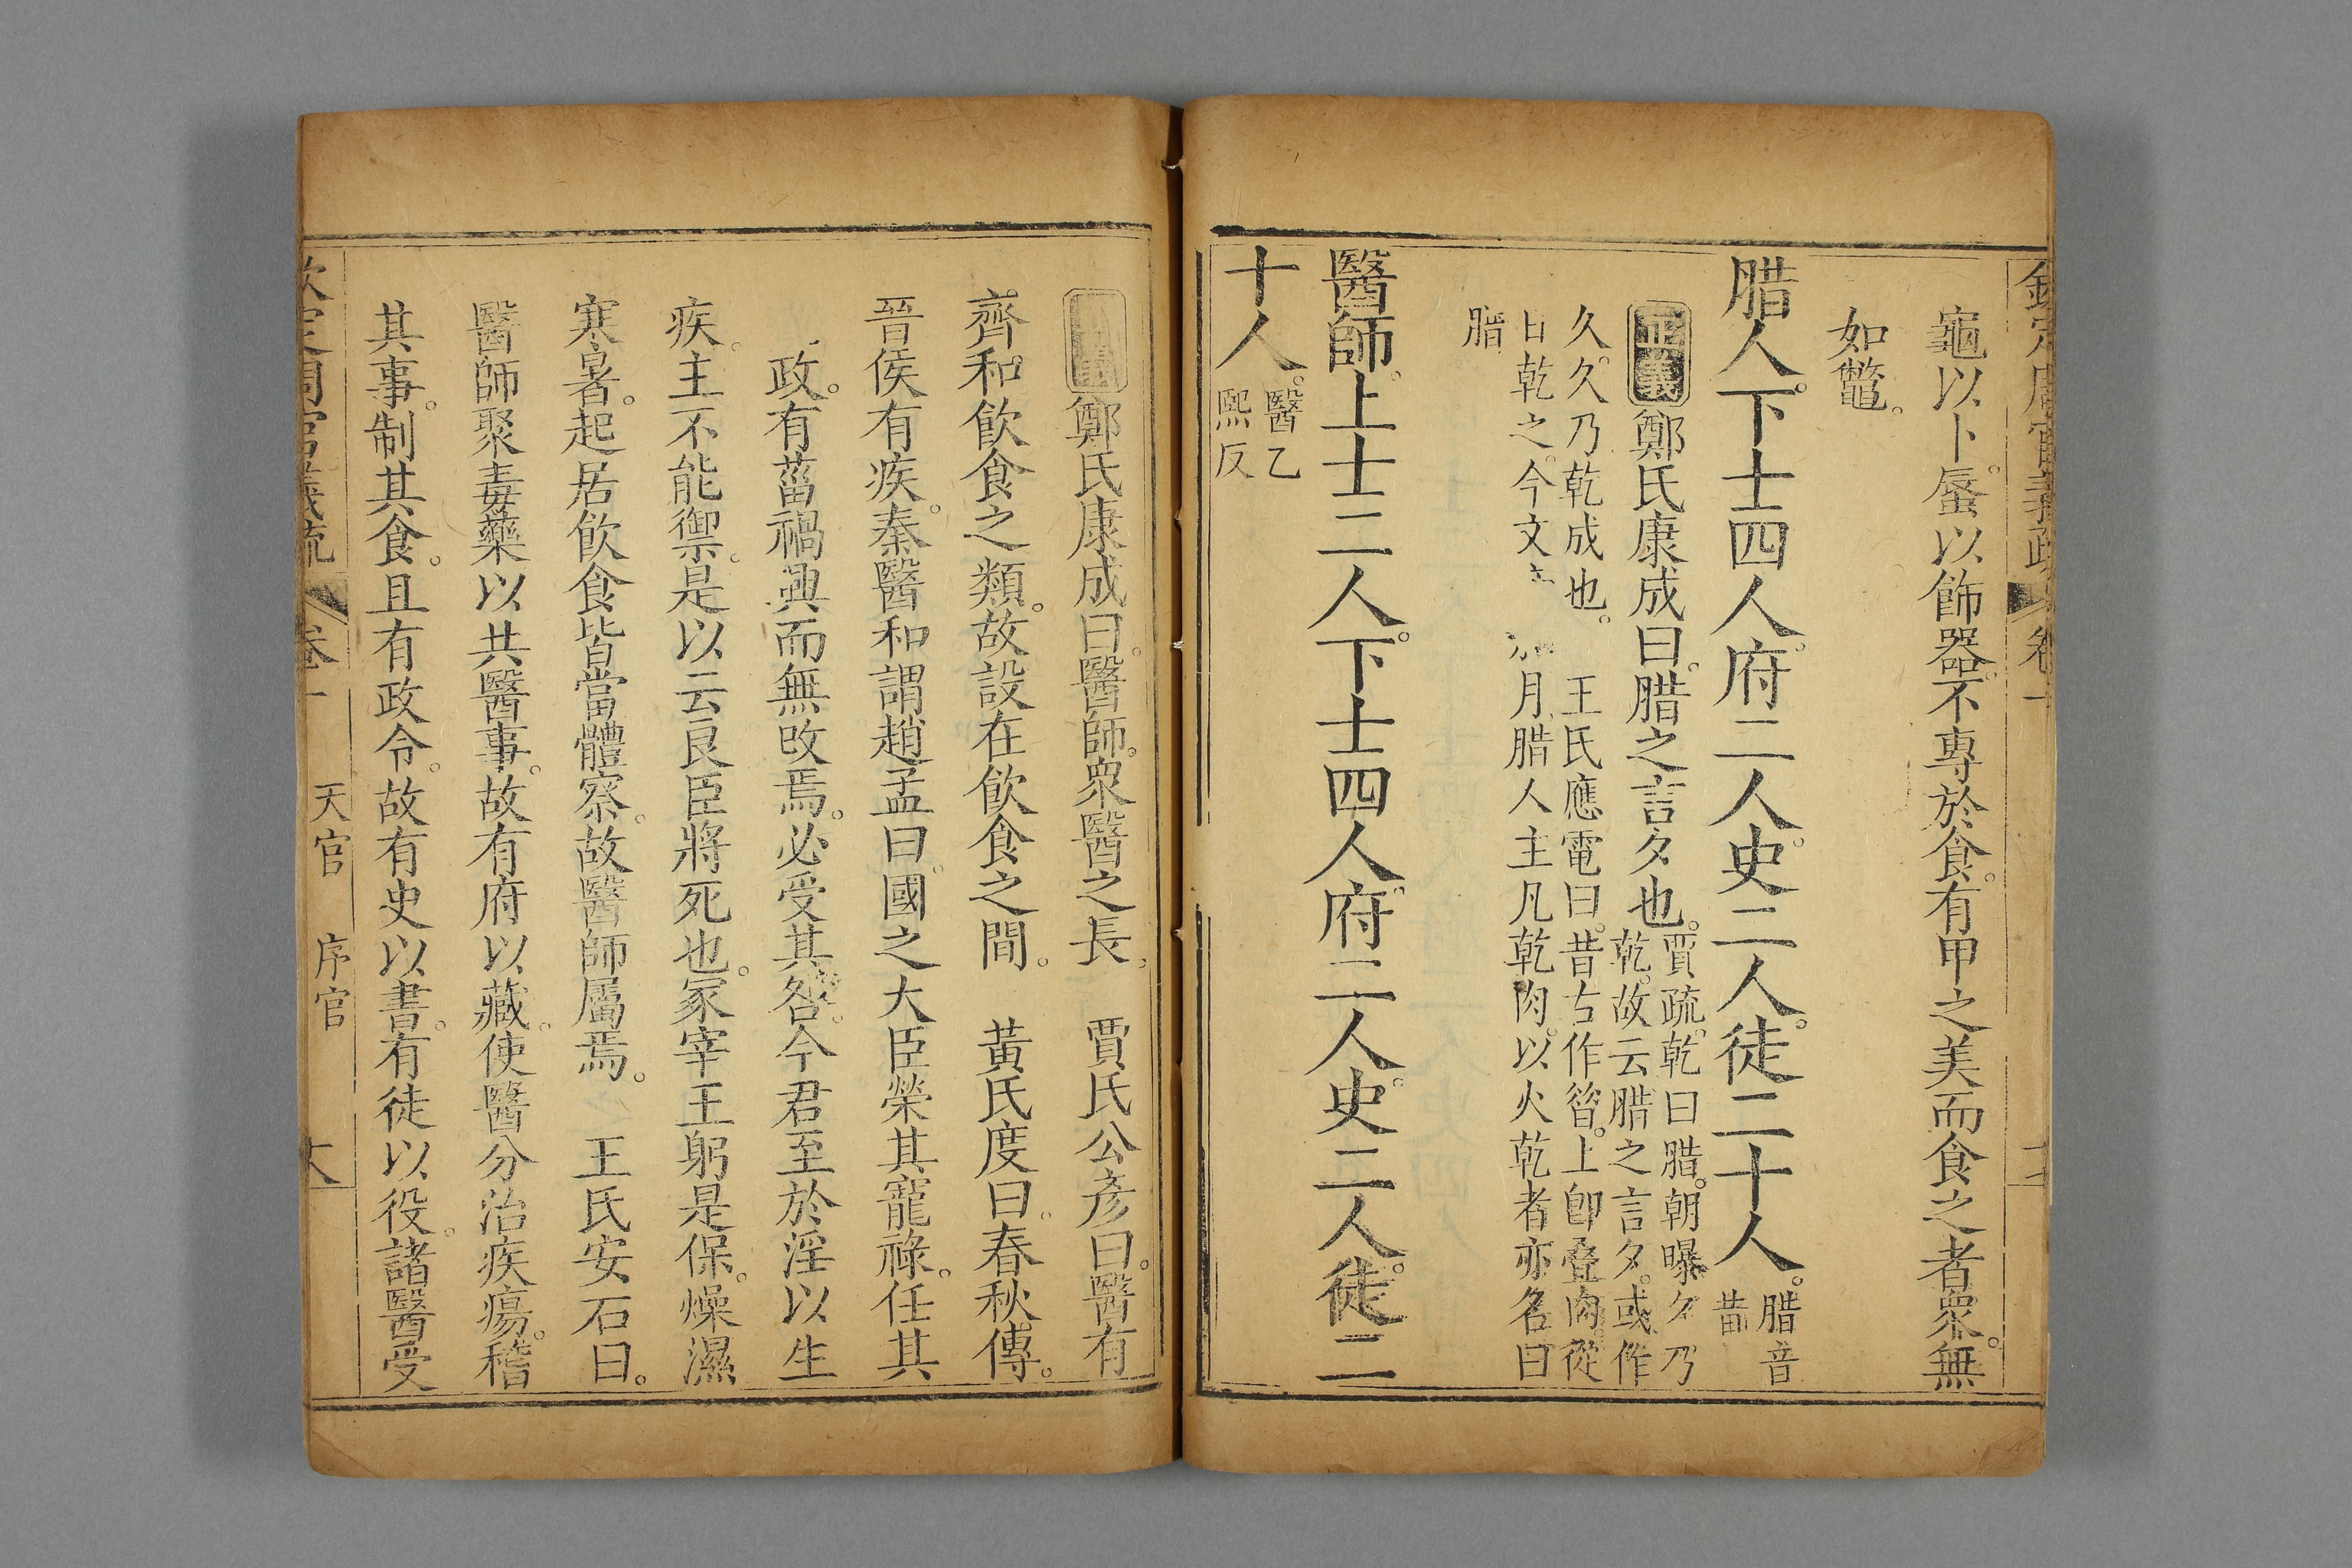 欽定周官義疏 卷一
龜以卜。蜃以飾器。不專於食。有甲之美而食之者衆。無
如鼈。
腊人。下士四人。府二人。史二人。徒二十人。腊音
昔
正義 鄭氏康成曰。腊之言夕也。賈疏。乾曰腊。朝曝夕乃
乾。故云腊之言夕。或作
久。久乃乾成也。 王氏應電曰。昔古作㫺。上卽疊肉。從
日乾之。今文 月腊人主凡乾肉。以火乾者亦名曰
腊
醫師。上士二人。下士四人。府二人。史二人。徒二
十人。醫乙
熙反
正義 鄭氏康成曰。醫師。衆醫之長。 賈氏公彥曰。醫有
齊和飲食之類。故設在飲食之間。 黃氏度曰。春秋傳。
晉侯有疾。秦醫和謂趙孟曰。國之大臣榮其寵祿。任其
政。有菑禍興而無改焉。必受其咎。今君至於淫以生
疾。主不能禦。是以云艮臣將死也。冢宰王躬是保。燥濕
寒暑。起居飲食皆當體察。故醫師屬焉。 王氏安石曰。
醫師聚毒藥以共醫事。故有府以藏。使醫分治疾瘍。稽
其事。制其食。且有政令。故有史以書。有徒以役。諸醫受
欽定周官義疏 卷一 天官 序官